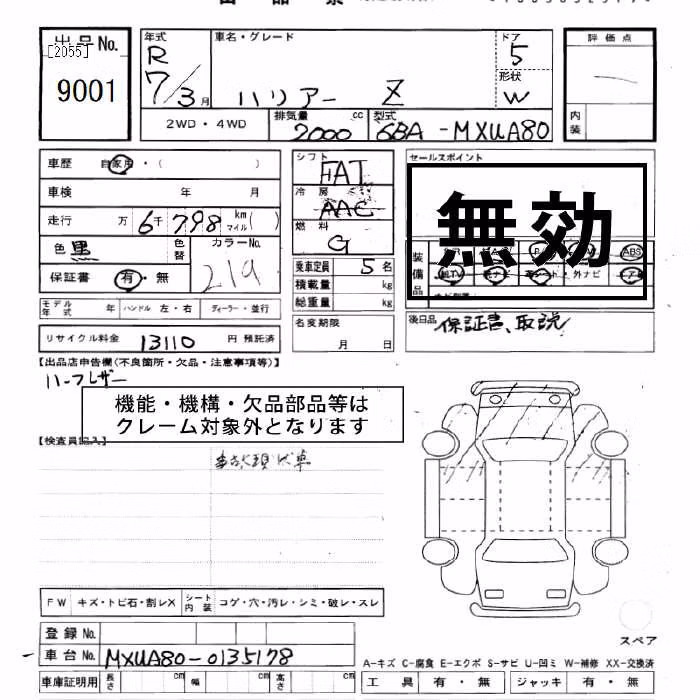 出品No.
[2055]
9001
年式
R
7/3月
車名・グレード
ハリアー Z
ドア
5
形状
W
評価点
内装
2WD・4WD
排気量 cc
2000
型式
6BA-MXUA80
車歴 自家用・( )
車検 年 月
走行 万 6千798 km マイル( )
色 黒 色替
カラーNo.
219
保証書 有・無
モデル年式 年 ハンドル 左・右 ディーラー・並行
リサイクル料金 13110 円 預託済
シフト
FAT
冷房
AAC
燃料
G
乗車定員 5 名
積載量 kg
総重量 kg
名変期限
月 日
セールスポイント
無効
装備品
ABS
後日品 保証書、取説
【出品店申告欄(不良箇所・欠品・注意事項等)】
ハーフレザー
機能・機構・欠品部品等は
クレーム対象外となります
【検査員記入】
事故現状車
FW キズ・トビ石・割レX シート内装 コゲ・穴・汚レ・シミ・破レ・スレ
登録No.
車台No. MXUA80-0135178
車庫証明用 長さ cm 幅 cm 高さ cm
スペア
A-キズ C-腐食 E-エクボ S-サビ U-凹ミ W-補修 XX-交換済
工具 有・無 ジャッキ 有・無